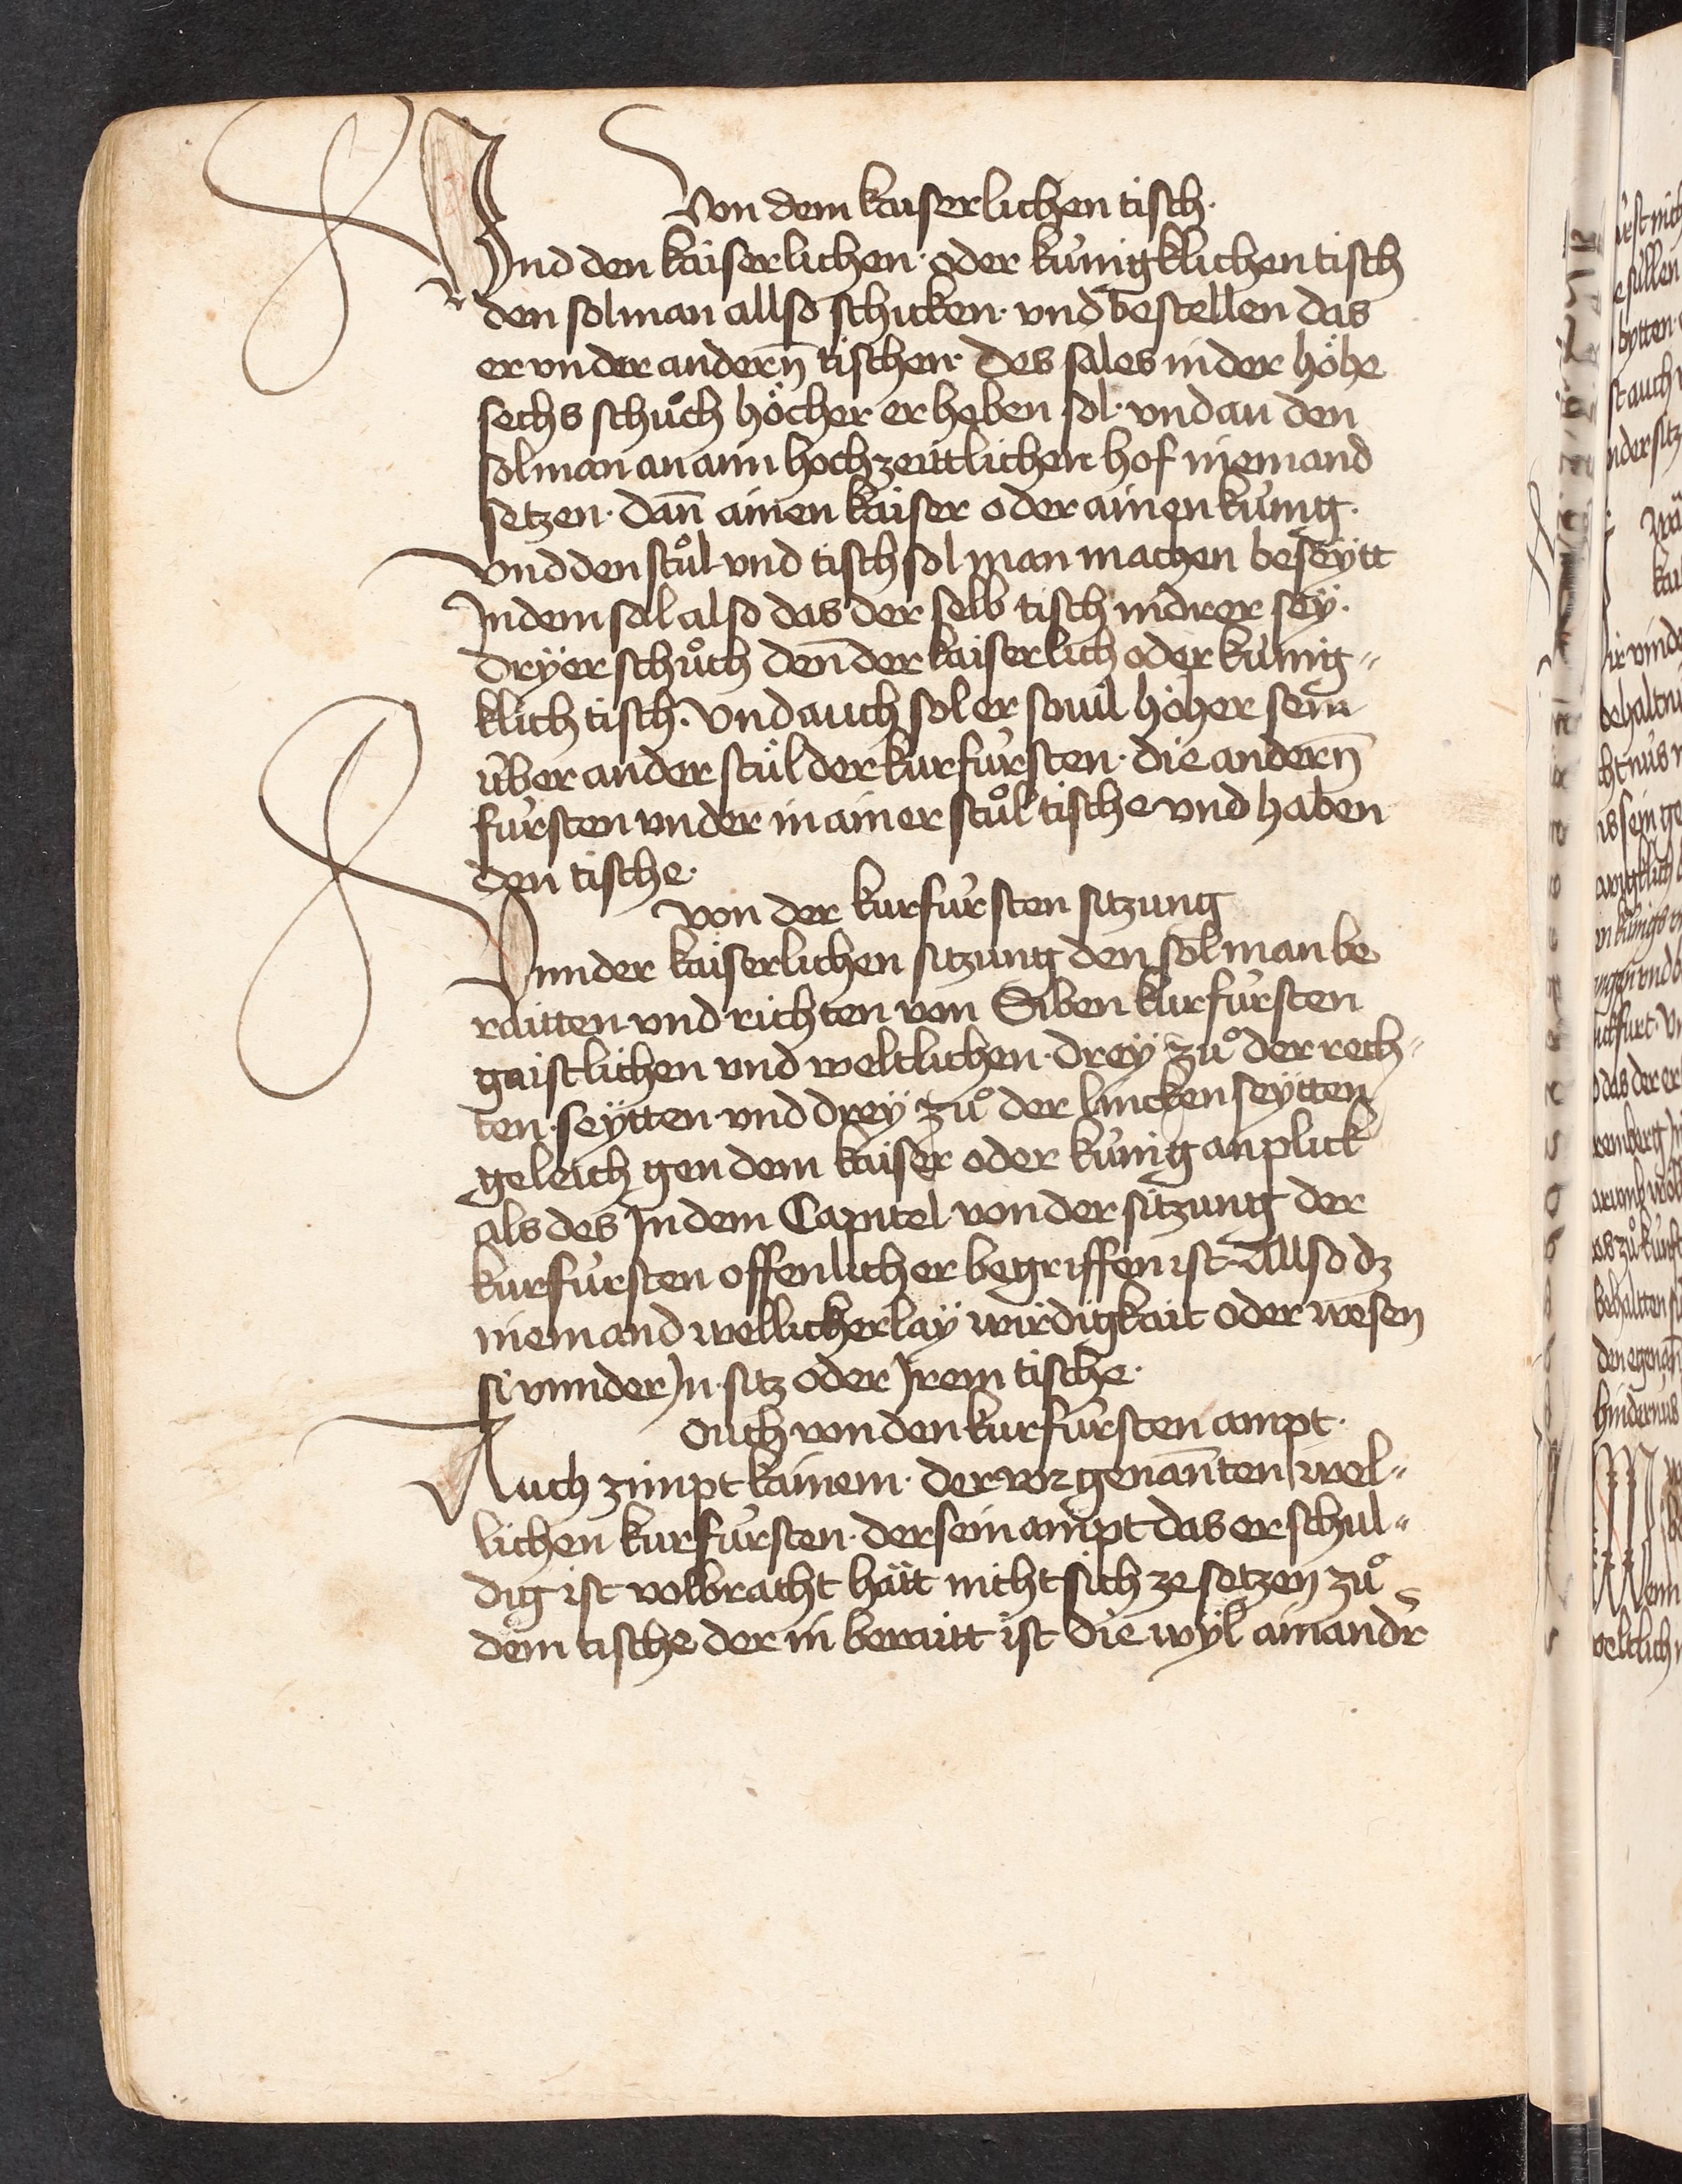 Von dem kaiserlichen tisch·
Vnd den kaiserlichen· oder kúnigklichen tisch
den sol man allso schicken· vnd bestellen das
er vnder andern̄ tischen des sales in der höhe
sechs schůch höcher erheben sol· vnd an den
sol man an aim hochzeittlichen hof niemand
setzen· dan̄ ainen kaiser oder ainen kúnig·
Vnd den stůl vnd tisch sol man machen beseÿtt
Jn dem sal also das der selb tisch nidrer seÿ·
drÿer schůch den̄ der kaiserlich oder kúnig„
klich tisch· Vnd auch sol er souil höher sein
úber ander stúl der kurfúrsten· die andern̄
fúrsten vnder in ainer stůl tische vnd haben
den tische·
Von der kurfúrsten sitzung
Vnnder kaiserlichen sitzung den sol man be
raitten vnd richten von Siben kurfúrsten
gaistlichen vnd weltlichen· dreÿ zů der rech„
ten· seÿtten· vnd dreÿ zů der lincken seÿtten
geleich gen dem kaiser oder kúnig anplick
als des Jn dem Capitel von der sitzung der
kurfúrsten offenlicher begriffen ist· Allso dz
niemand wellicherlaÿ wirdigkait oder wesen
si vnnder Jn· sitz oder Jrem tische·
Ouch von den kurfúrsten ampt·
Auch zimpt kainem· der vorgenan̄ten wel„
lichen kurfúrsten· der sein ampt das er schul„
dig ist volbracht hätt nicht sich ze setzen zů
dem tische der in beraitt ist die wÿl ainandr